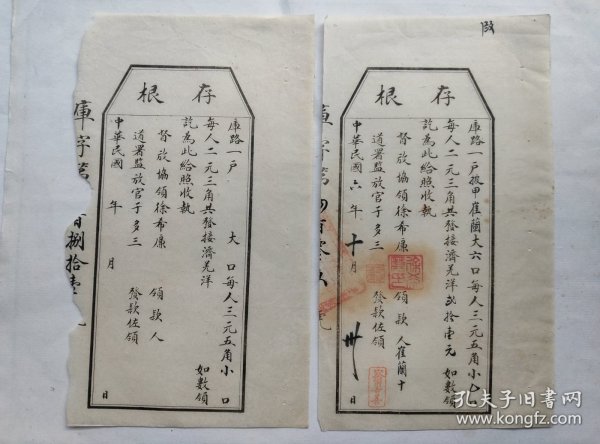 存根
庫路一戶 大 口每人三元五角小 口
每人二元三角共發接濟羌洋 如數領
訖為此給照收執
督放協領徐希廉 領款人
道署監放官于多三 發款佐領
中華民國 年 月 日
庫字第 百捌拾壹號
存根
庫路一戶披甲崔蘭大六口每人三元五角小 口
每人二元三角共發接濟羌洋貳拾壹元 如數領
訖為此給照收執
督放協領徐希廉 領款人崔蘭十
道署監放官于多三 發款佐領
中華民國六年十月卅日
庫字第四百零 號
孔夫子旧书网
kongfz.com